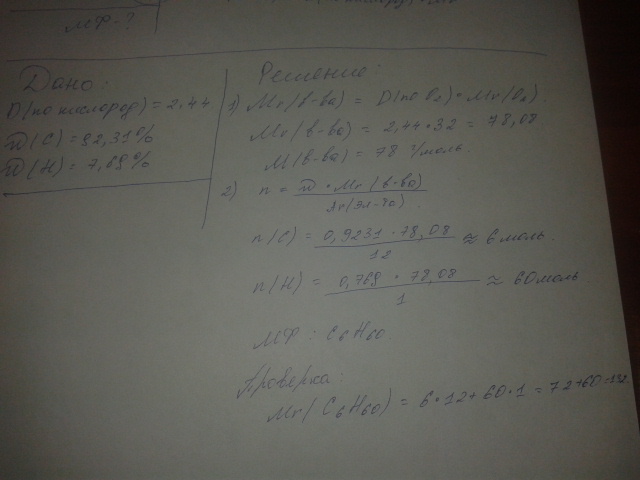 МФ-?
Дано:
D(по кислород) = 2.44
W(C) = 92,31%
W(H) = 7,69%
Решение:
1) Mr(в-ва) = D(по O₂) • Mr(O₂).
Mr(в-ва) = 2,44 • 32 = 78,08
M(в-ва) = 78 г/моль.
2) n = W • Mr(в-ва) / Ar(эл-та).
n(C) = 0,9231 • 78,08 / 12 ≈ 6 моль.
n(H) = 0,769 • 78,08 / 1 ≈ 60 моль
МФ: C₆H₆₀
Проверка:
Mr(C₆H₆₀) = 6•12+60•1 = 72+60=132